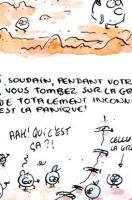 SOUDAIN, PENDANT VOTR
, VOUS TOMBEZ SUR LA GR
DE TOTALEMENT INCONNU
EST LA PANIQUE!
AAH! QUI C'EST
ÇA ?!
CELLU
GR